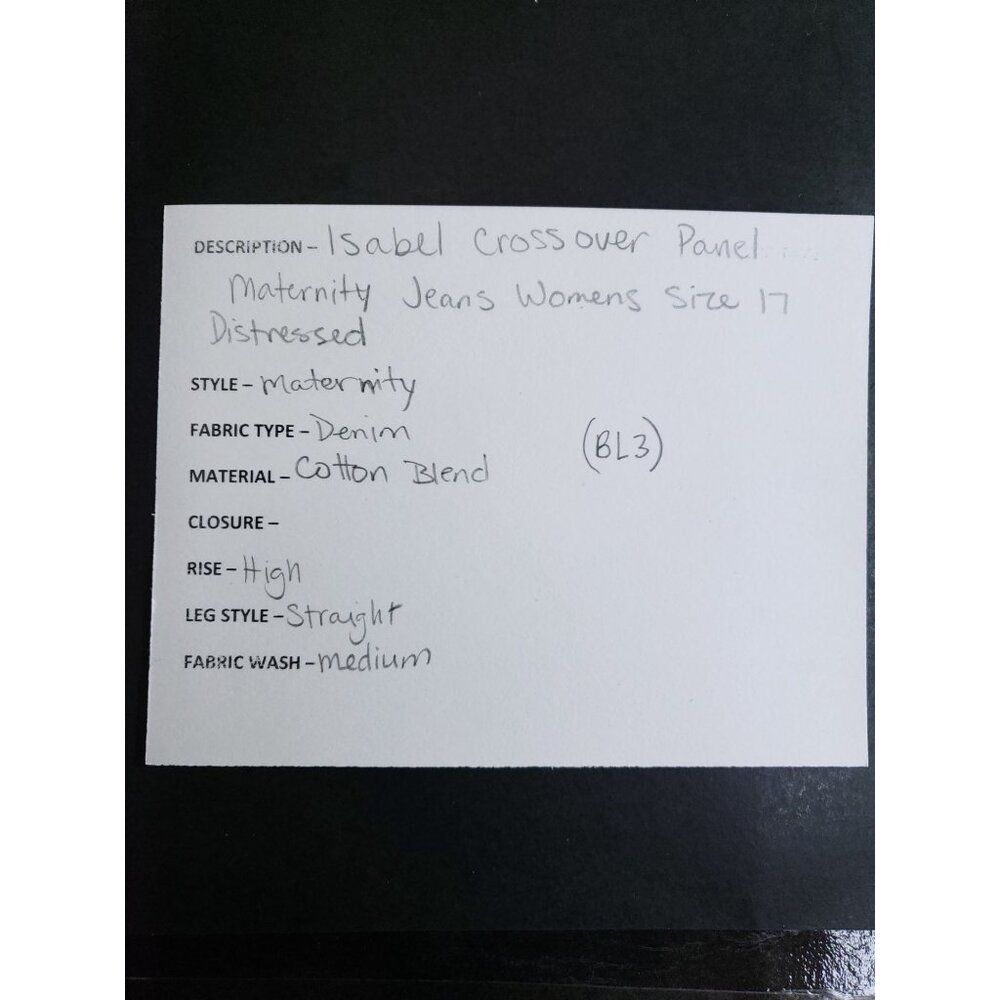 DESCRIPTION – Isabel Crossover Panel
Maternity Jeans Womens Size 17
Distressed
STYLE – Maternity
FABRIC TYPE – Denim
(BL3)
MATERIAL – Cotton Blend
CLOSURE –
RISE – High
LEG STYLE – Straight
FABRIC WASH – medium